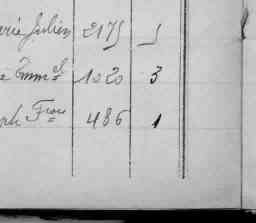 rie Julien 2175 5
e Emm.el 1020 3
ph Fçois 486 1